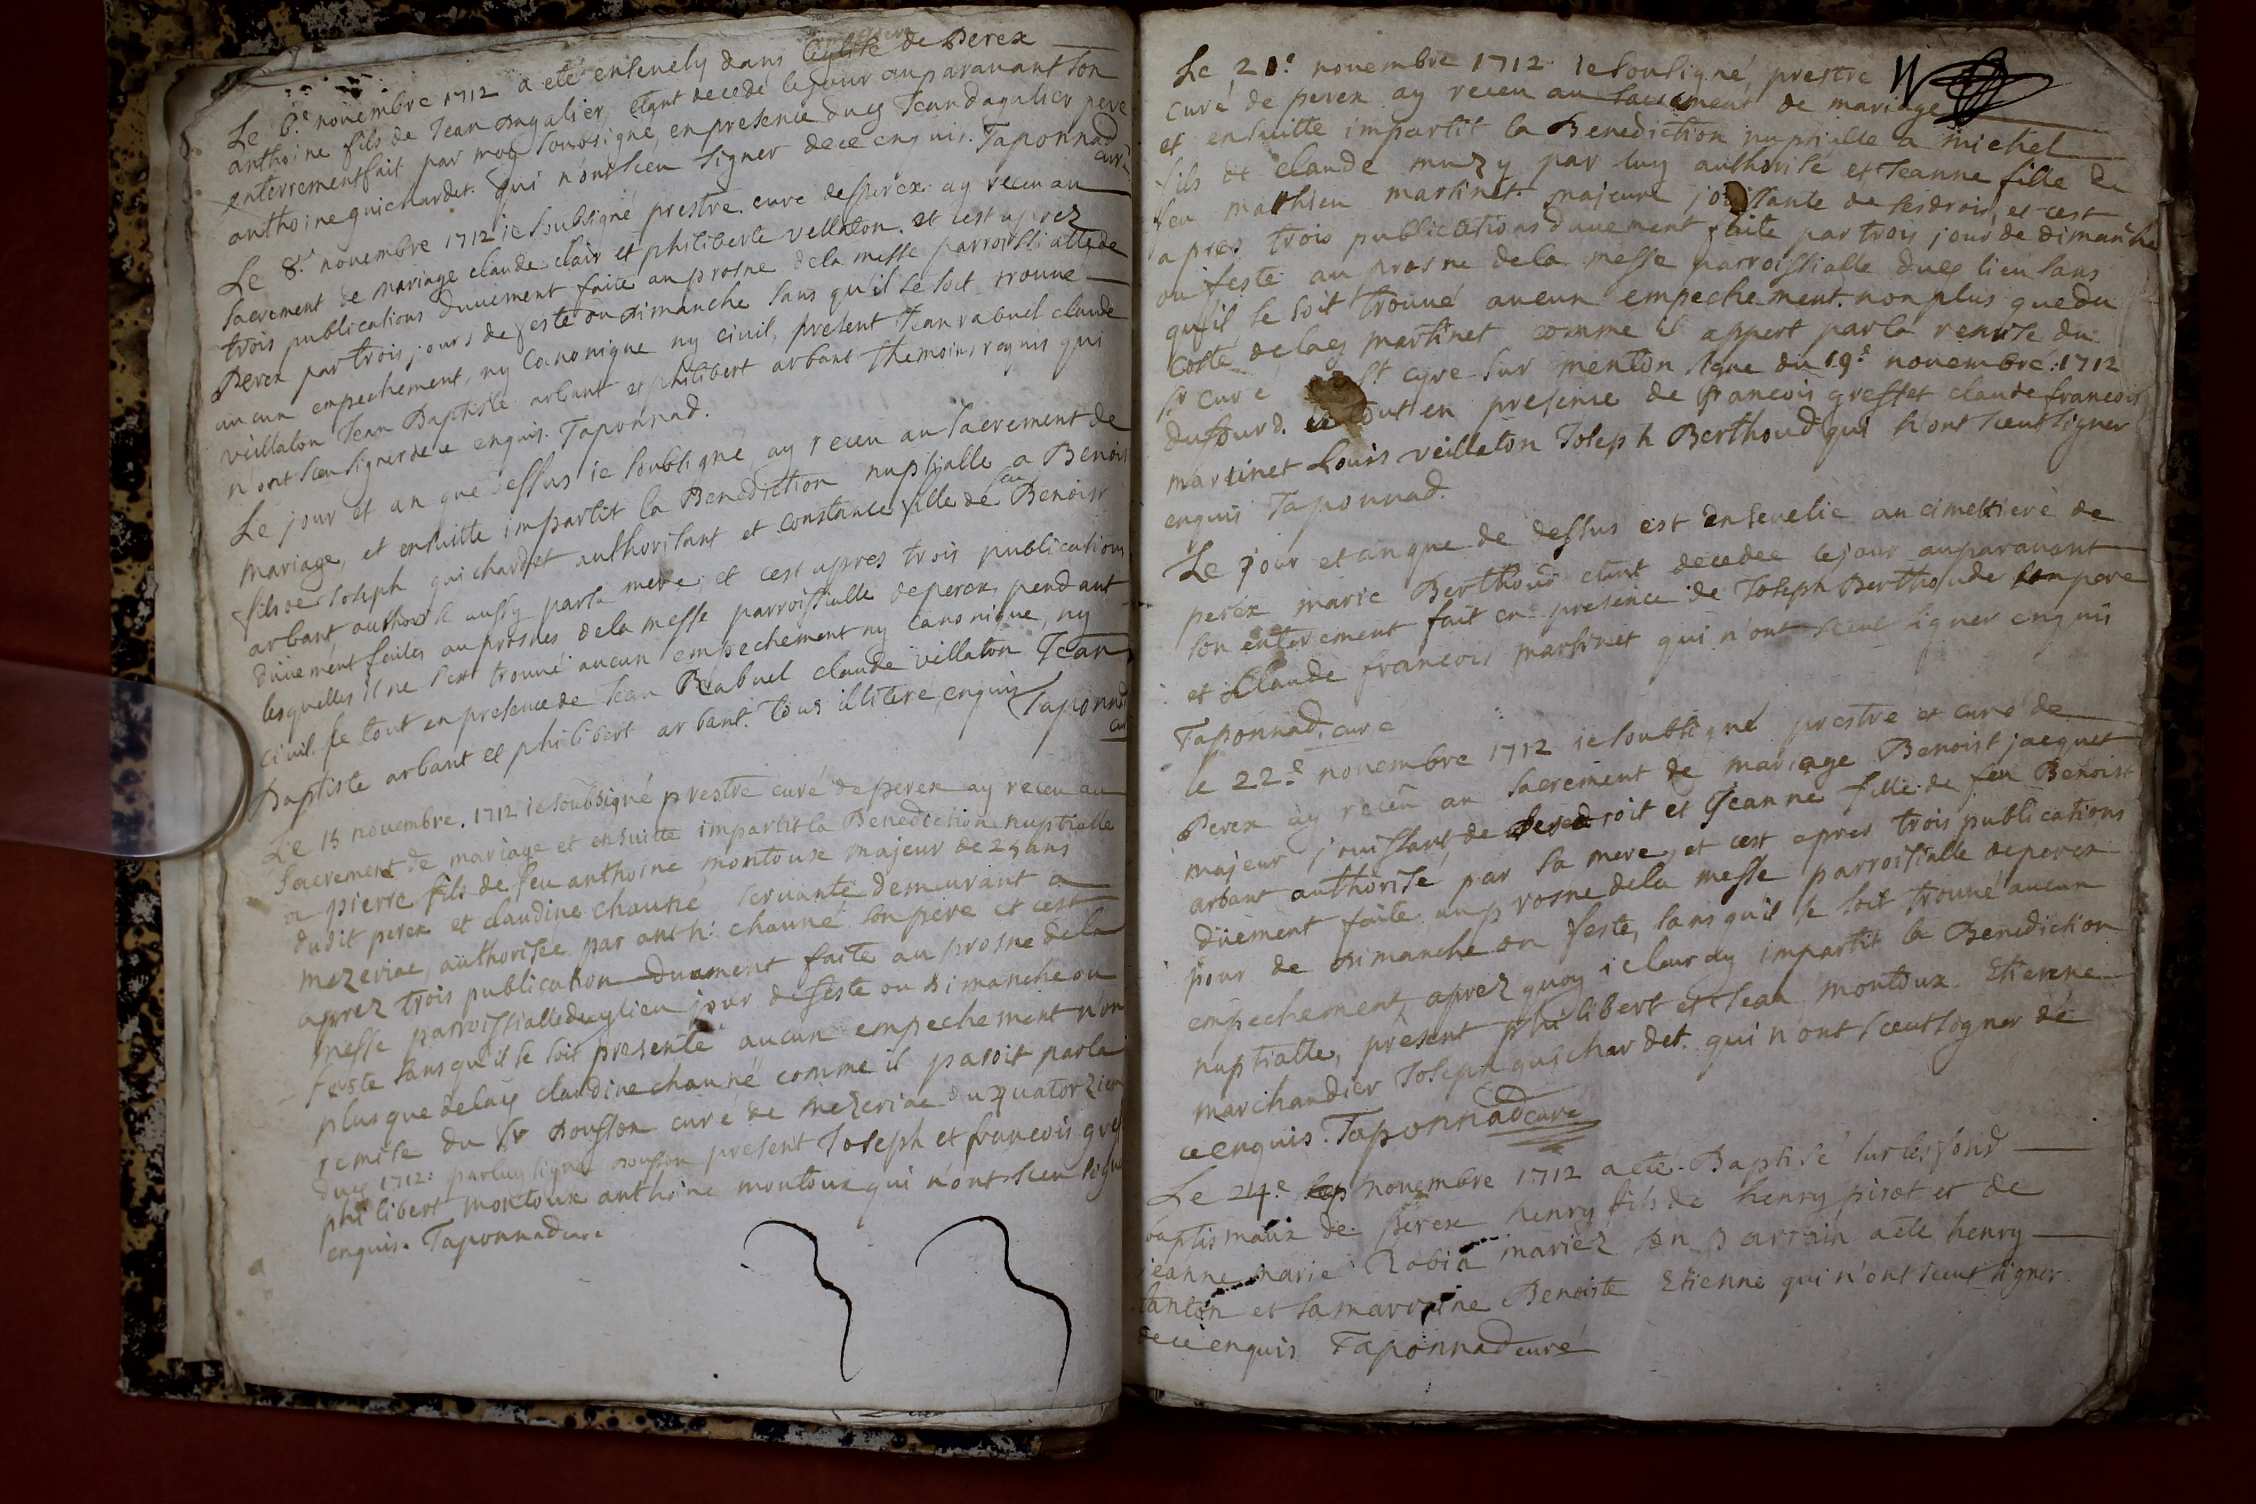 Le 6.e novembre 1712 a eté ensevely dans l'eglise de Perex
anthoine fils de Jean Dagalier, etant decedé le jour auparavant son
enterrement fait par moy soussigné, en presence dueg Jean dagalier pere
anthoine guichardet. qui n'ont sceu signer de ce enquis. Taponnad
curé
Le 8.e novembre 1712 ie soubsigné prestre curé de perex ay receu au
sacrement de mariage claude clair et philiberte vellaton. et cest aprez
trois publications duuement faite au prosne dela messe parroissialle de
Perex par trois jours de feste ou dimanche sans qu'il se soit trouue
aucun empechement, ny canonique ny ciuil, present Jean rabuel claude
veillaton Jean Baptiste arbant et philibert arbant themoins requis qui
n'ont sceu signer de ce enquis. Taponnad.
Le jour et an que dessus ie soubsigné ay receu au sacrement de
mariage, et ensuitte impartit la Benediction nuptialle a Benoit
fils de Joseph guichardet authorisant et constance fille de feu Benoist
arbant authorisé aussy par sa mere et cest apres trois publications
duuement faites au prosnes dela messe parroissialle de perex, pendant
lesquelles il ne s'est trouué aucun empechement ny canonique, ny
ciuil. le tout en presence de Jean Rabuel claude villaton Jean
Baptiste arbant et philibert arbant. tous illitere enquis Taponnad
cur
Le 15 novembre. 1712 ie soubsigné prestre curé de perex ay receu au
sacrement de mariage et ensuitte impartit la Benediction nuptialle
a pierre fils de feu anthoine montoux majeur de 25 ans
dudit perex et claudine chauné servante demeurant a
mezeriac, authorisée par anth: chauné son pere et cest
aprez trois publication duument faite au prosne dela
messe parroissialle dueg lieu jour de feste ou dimanche ou
feste sans qu'il se soit presenté aucun empechement non
plus que delaeg claudine chauné comme il paroit parla
remise du sr Dousson curé de mezeriac du quatorzieme
dueg 1712: parluy signé Dousson present Joseph et francois gres
philibert montoux anthoine montoux qui n'ont sceu signer
enquis. Taponnad curé
Le 21.e novembre 1712 ie sousigné, prestre
curé de perex ay receu au sacrement de mariage
et ensuitte impartit la Benediction nuptialle a michel
fils de claude muzy par luy authorisé et Jeanne fille de
feu mathieu martinet. majeure jouissante de ses droits, et cest
apres trois publications duuement faite par trois jour de dimanche
ou feste au prosne dela messe parroissialle dueg lieu sans
qu'il se soit trouué aucun empechement. non plus que du
costé delaeg martinet comme il appert parla remise du
sr curé St cyre sur menton signe du 19.e novembre. 1712
dufourd. le tout en presence de francois gresset claude francois
martinet Louis veillaton Joseph Berthoud qui n'ont sceut signer
enquis Taponnad.
Le jour et an que de dessus est ensevelie au cimettiere de
perex marie Berthoud etant decedée le jour auparavant
son enterement fait en presence de Joseph Berthoude son pere
et Claude francois martinet qui n'ont sceut signer enquis
Taponnad. curé
le 22.e novembre 1712 ie soubsigné prestre et curé de
Perex ay receu au sacrement de mariage Benoist jacquet
majeur jouissant de ses droit et Jeanne fille de feu Benoist
arbant authorisé par sa mere, et cest apres trois publications
duement faite au prosne dela messe parroissialle de perex
jour de dimanche ou feste, sans qu'il se soit trouué aucun
empechement, aprez quoy ie leur ay impartit la Benediction
nuptialle, present philibert et Jean montoux Etienne
marchandier Joseph guichardet. qui n'ont sceut signer de
ce enquis. Taponnad curé
Le 24.e novembre 1712 a eté Baptisé sur les fond
baptismaux de perex henry fils de henry pirot et de
jeanne marie Robin mariez son parrain a eté henry
tanton et sa marraine Benoiste Etienne qui n'ont sceut signer
de ce enquis Taponnad curé